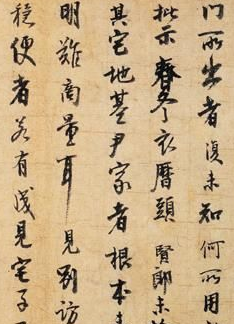 门所出者復未知何所用
批示春冬衣曆頭賢郎未
其宅地基尹家者根本未
明難商量耳見別訪
穏便者若有成見宅子又